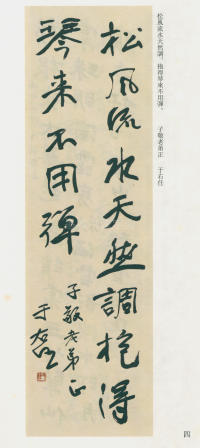 松風流水天然調抱得
琴来不用彈
子敬老弟正
于右任
松風流水天然調，抱得琴來不用彈。 子敬老弟正 于右任
四